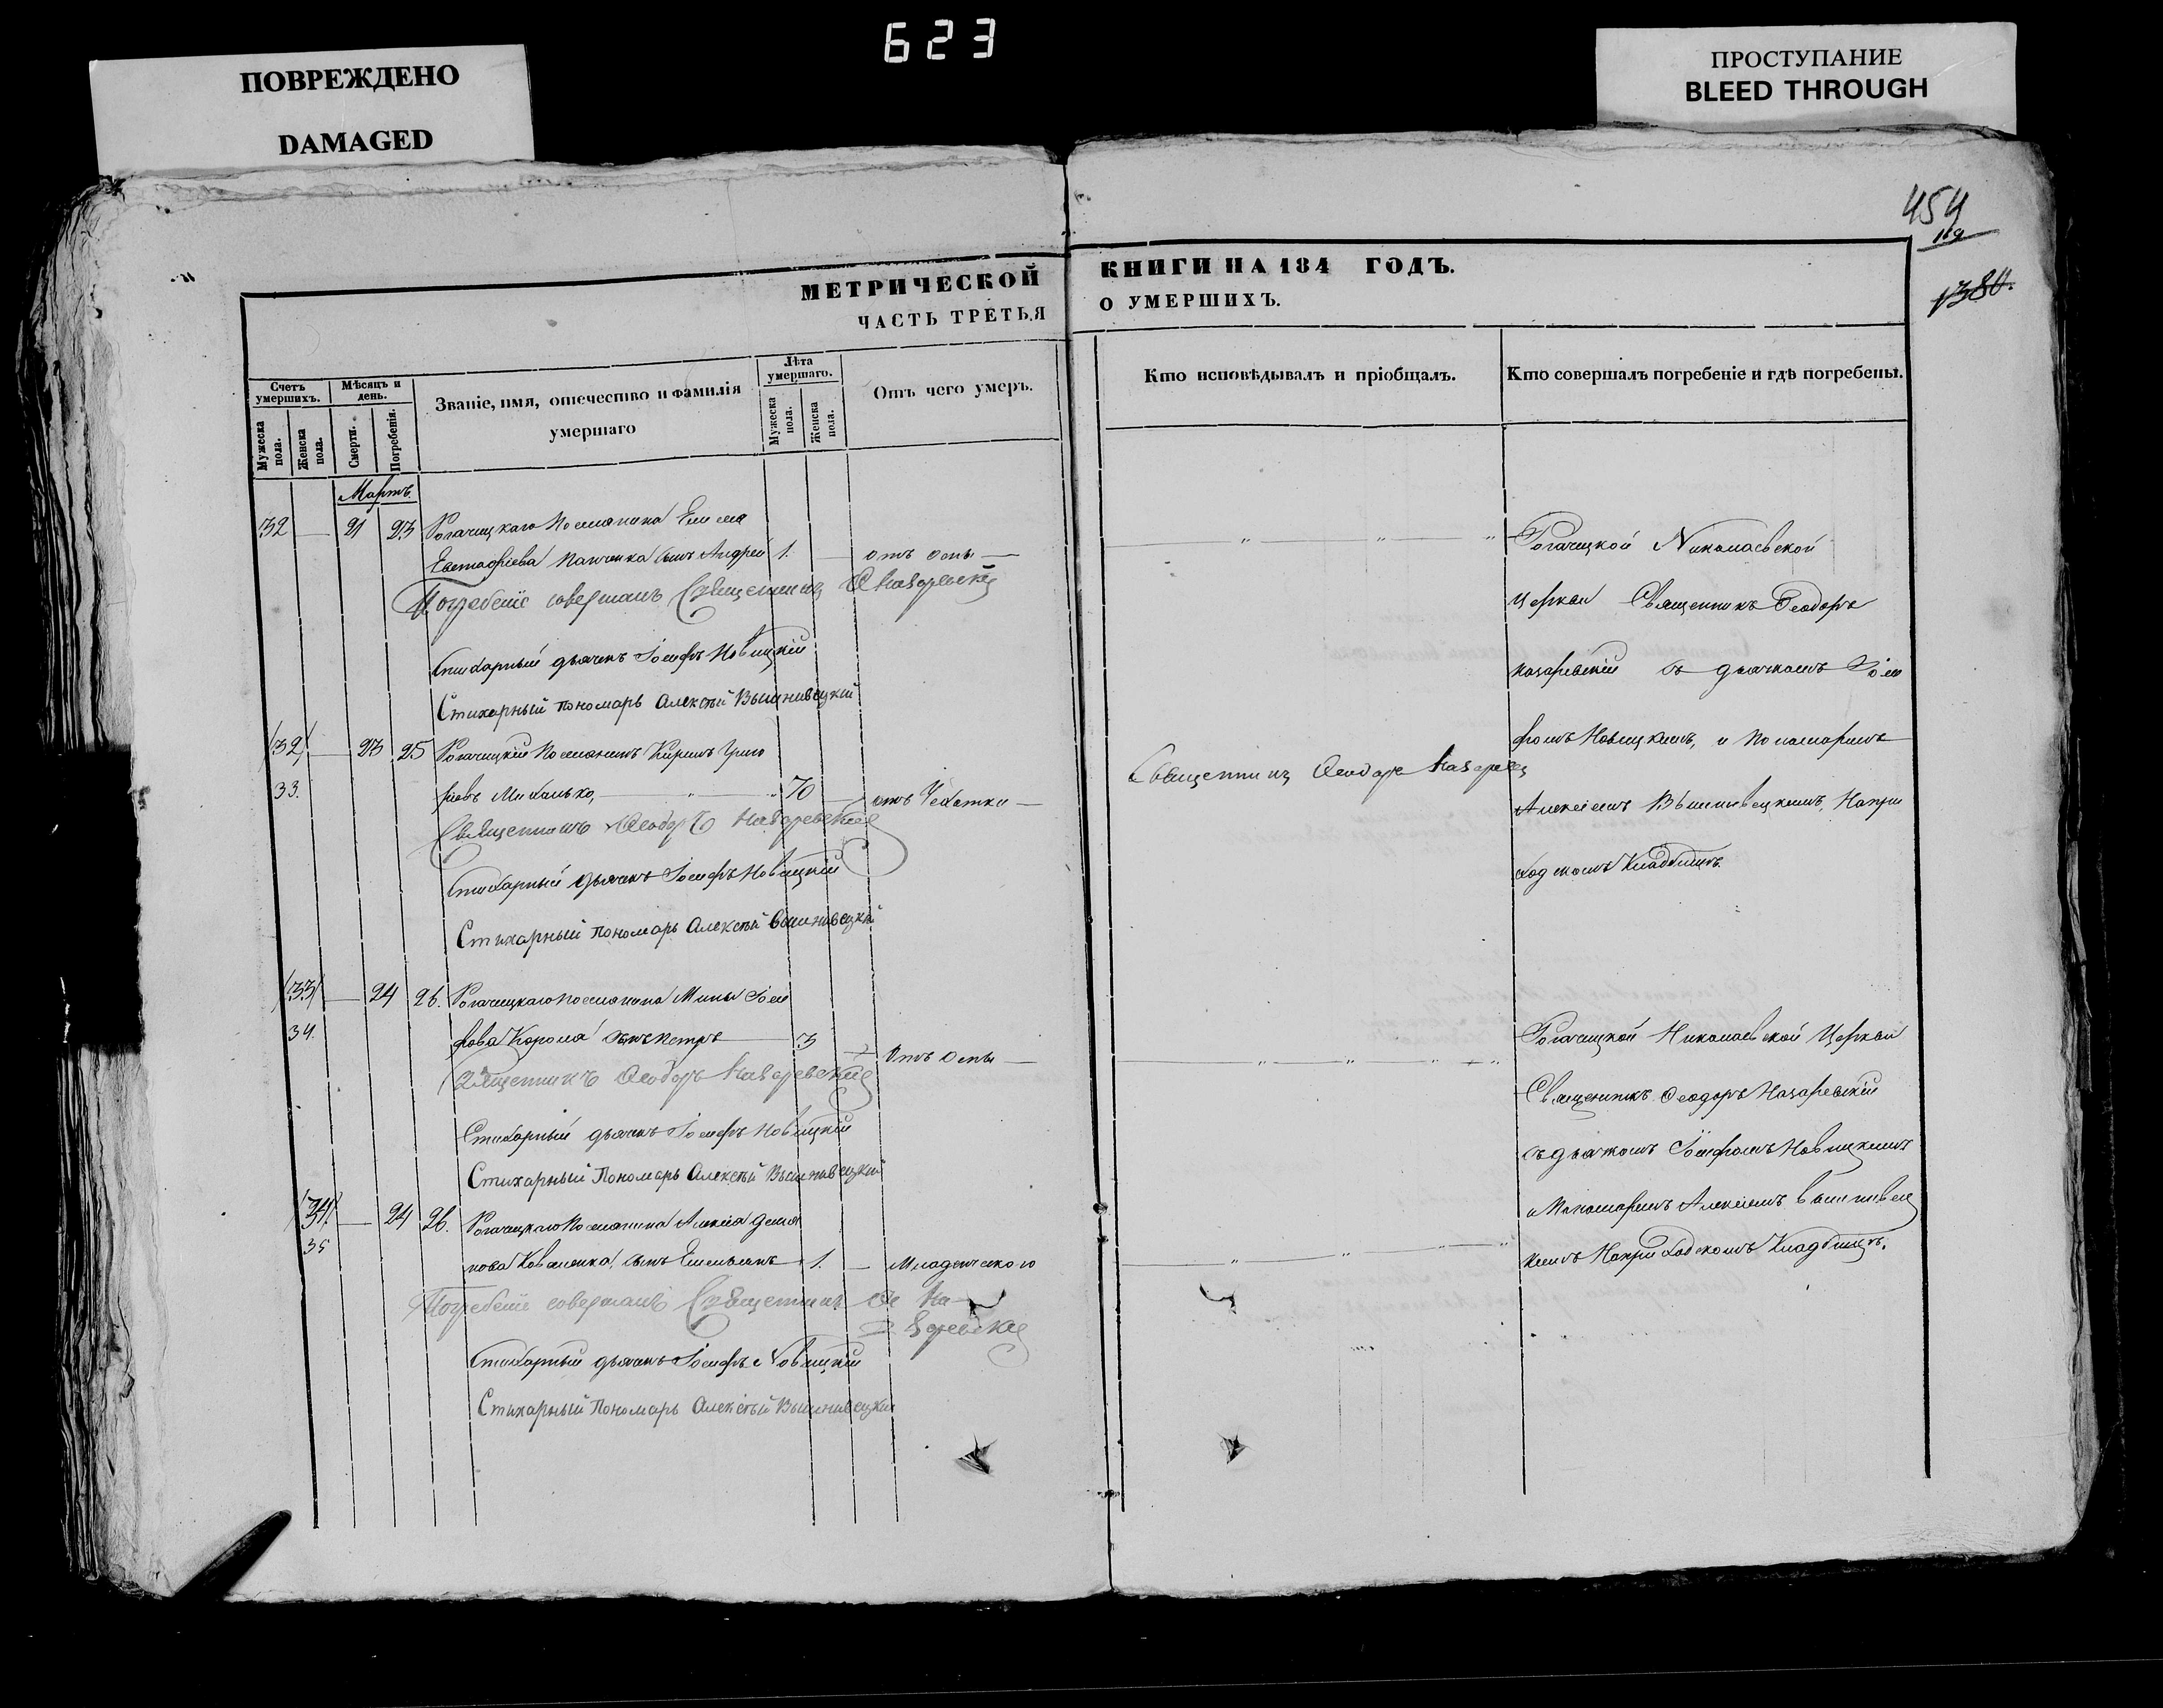 623
ПОВРЕЖДЕНО
DAMAGED
ПРОСТУПАНИЕ
BLEED THROUGH
454
1380.
МЕТРИЧЕСКОЙ
ЧАСТЬ ТРЕТЬЯ
КНИГИ НА 184 ГОДЪ.
О УМЕРШИХЪ.
Счетъ умершихъ.
Мужеска пола.
Женска пола.
Мѣсяцъ и день.
Смерти.
Погребенія.
Званіе, имя, отечество и фамилія
умершаго
Лѣта умершаго.
Мужеска пола.
Женска пола.
Отъ чего умеръ.
Кто исповѣдывалъ и пріобщалъ.
Кто совершалъ погребеніе и гдѣ погребены.
Мартъ
32 — 21 23 Рогачицкаго Поселянина
Евстафіева сынъ Андрей 1. — отъ оспы —
Погребеніе совершалъ Священникъ Ѳ Назаревскій
Стихарный дьячекъ Іосифъ Новицкій
Стихарный пономарь Алексѣй Вышнивецкій
(32) — 23 25 Рогачицкій Поселянинъ Кирилъ Григо
33. рьевъ Михалько, — " — 70 — отъ Чехотки —
Священникъ Ѳеодоръ Назаревскій
Стихарный дьячекъ Іосифъ Новицкій
Стихарный пономарь Алексѣй Вышнивецкій
(33) — 24 26. Рогачицкаго поселянина Мины Іоси
34. фова Короля сынъ Петръ — 3 — Отъ Оспы —
Священникъ Ѳеодоръ Назаревскій
Стихарный дьячекъ Іосифъ Новицкій
Стихарный Пономарь Алексѣй Вышнивецкій
(34) — 24 26. Рогачицкаго Поселянина Алексія Демья
35 нова Коваленка, сынъ Емельянъ 1. — Младенческаго
Погребеніе совершалъ Священникъ Ѳе На-
заревскій
Стихарный дьячекъ Іосифъ Новицкій
Стихарный Пономарь Алексѣй Вышнивецкій
Священникъ Ѳеодоръ Назаревск
Рогачицкой Николаевской
Церкви Священникъ Ѳеодоръ
Назаревскій съ дьячкомъ Іоси
фомъ Новицкимъ, и Пономаремъ
Алексіемъ Вышнивецкимъ, На при
ходскомъ Кладбищѣ.
Рогачицкой Николаевской Церкви
Священникъ Ѳеодоръ Назаревскій
съ дьячкомъ Іосифомъ Новицкимъ
и Пономаремъ Алексіемъ Вышнивец
кимъ На приходскомъ Кладбищѣ.